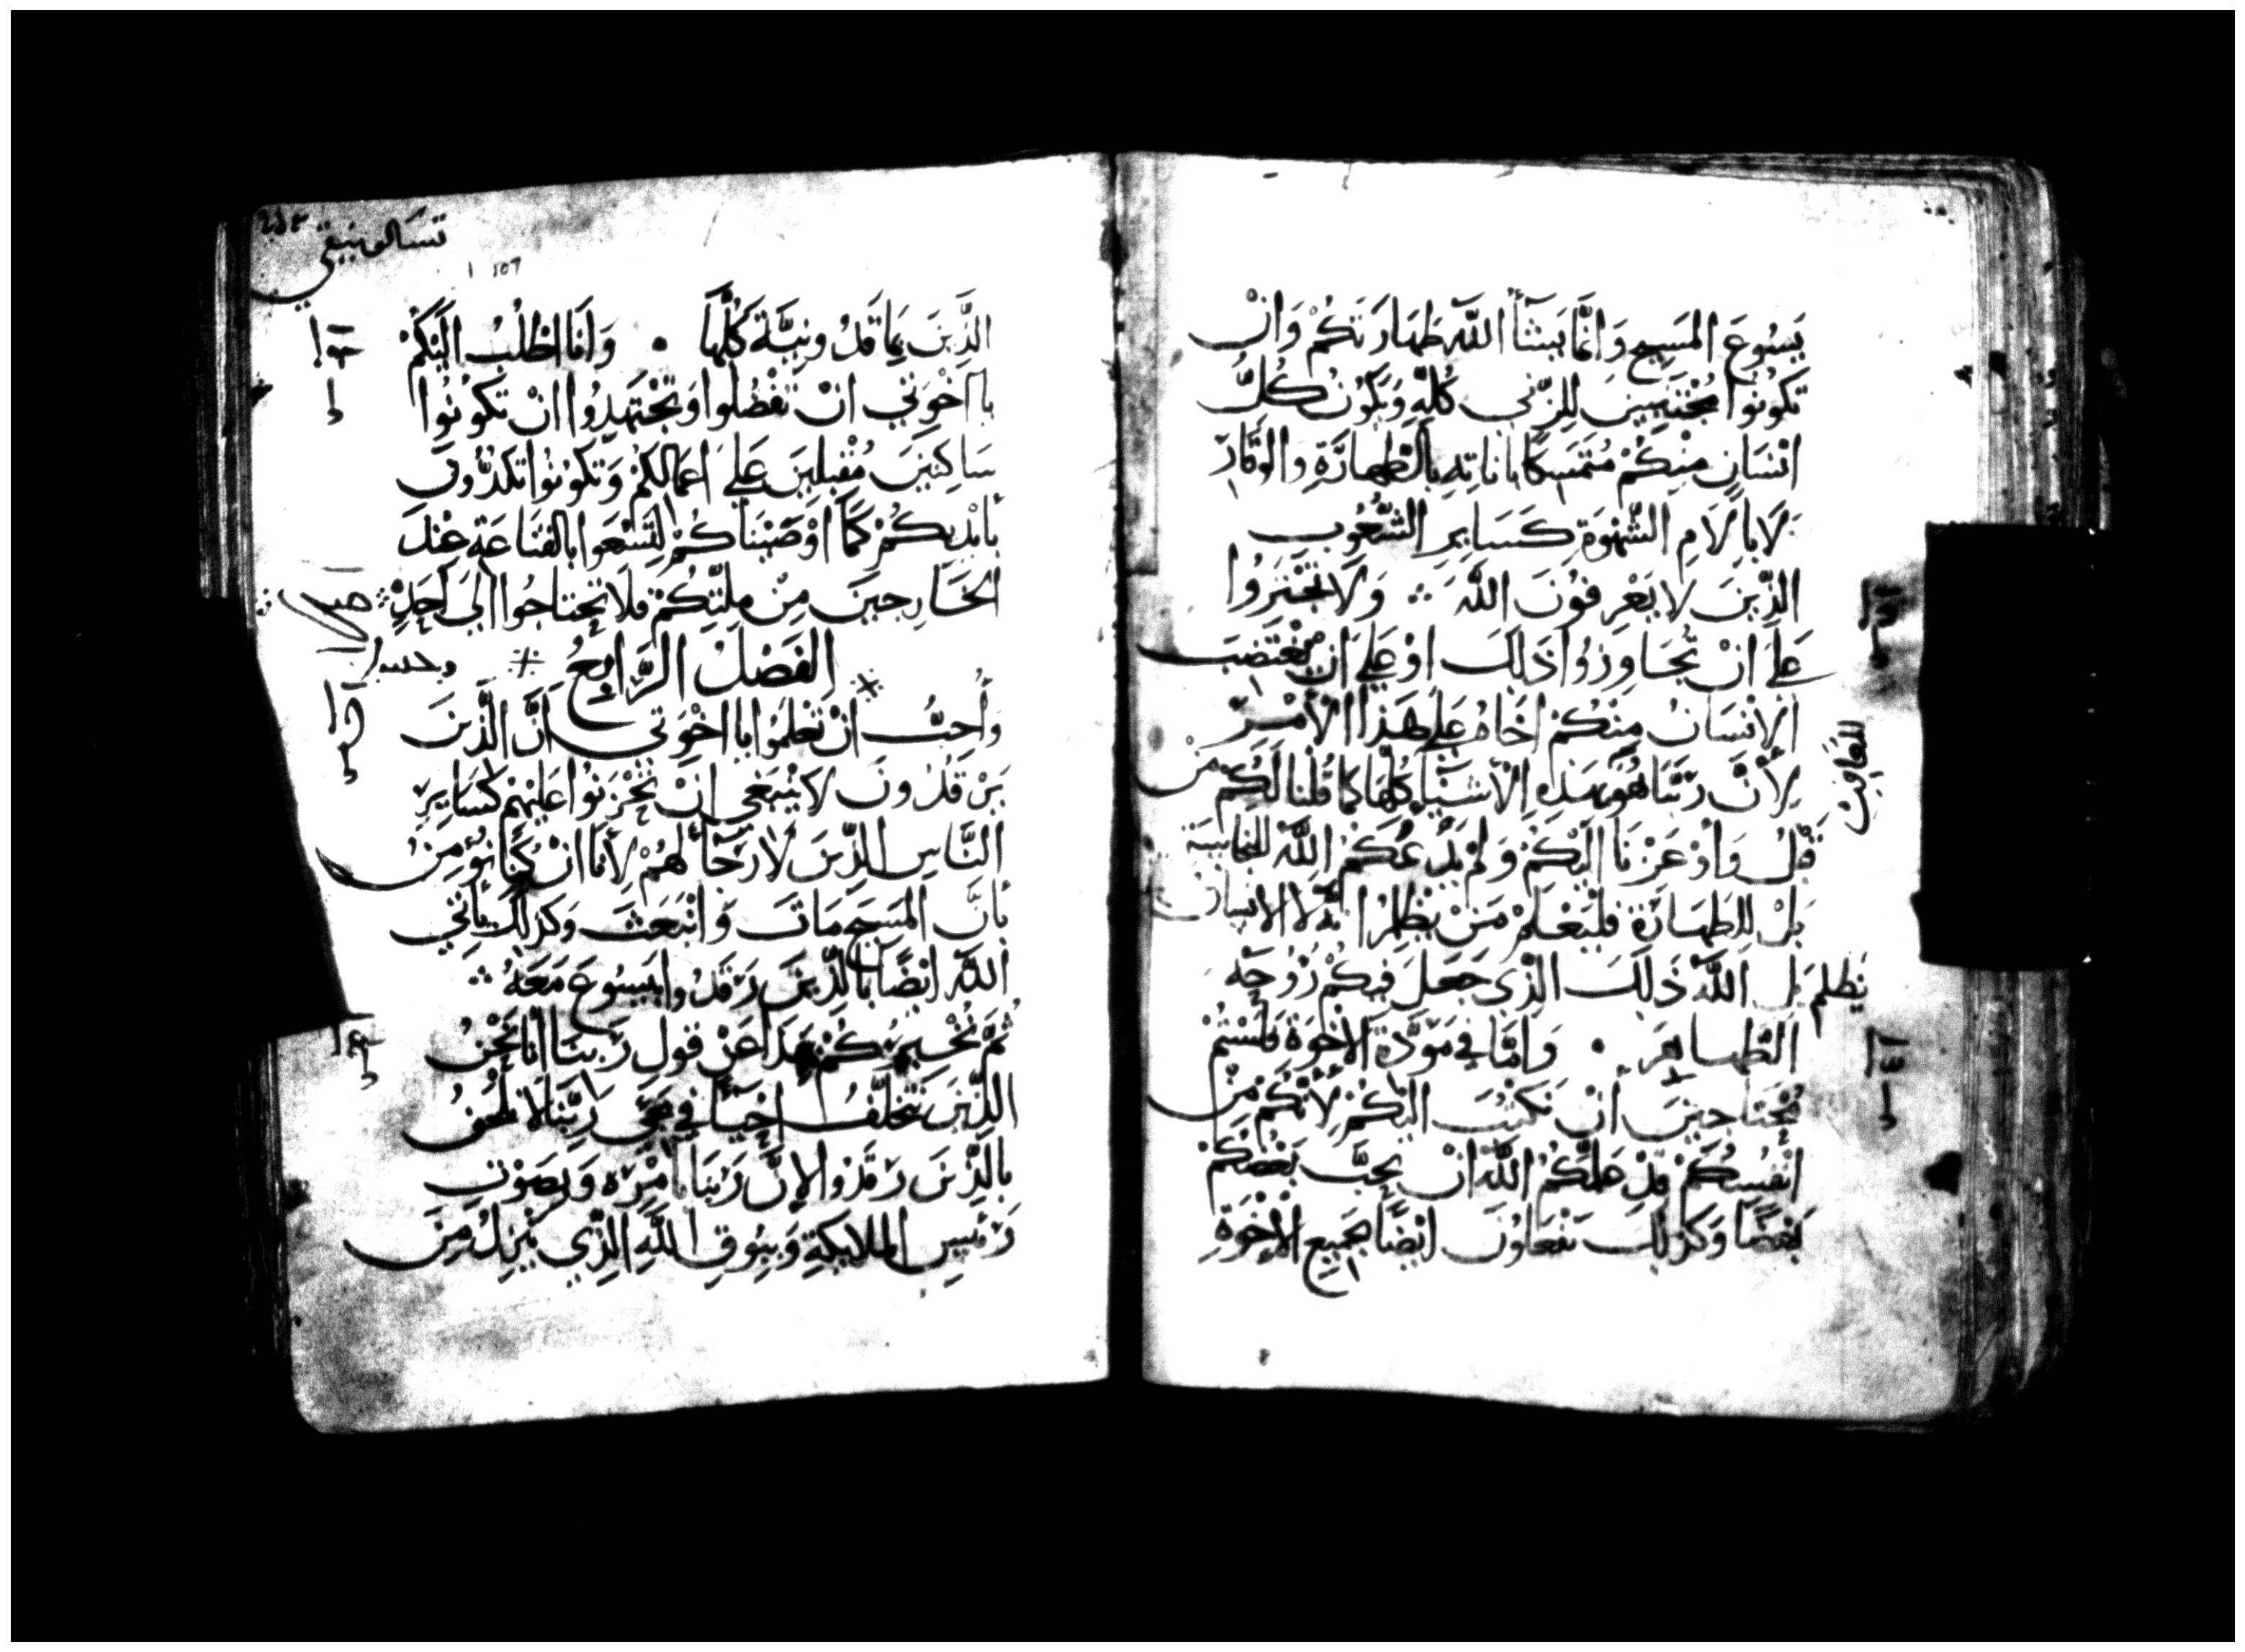 يَسُوعَ المَسِيحِ وَانَّمَا يَشَأُ اللَّه طَهَارَتَكُمْ وَانْ
تَكُونُوا مُجْتَنِبِينَ لِلزِّنَي كُلِّهِ وَيَكُونُ كُلُّ
انْسَانٍ مِنْكُمْ مُتَمَسِكًا باناتِهِ بِالطَّهَارَةِ والوَقَارِ
لَا بِالَامِ الشَّهْوَةِ كَسَايِرِ الشُّعُوبِ
الَّذِينَ لا يَعْرِفُونَ اللَّهَ ۞ وَلَا تَجْتَرُوا
عَلَي انْ تُجَاوِزُوا ذَلِكَ اوْ عَلَي انْ يَغْتَصِبَ
الانْسَانُ مِنْكُمْ اخَاهُ عَلَي هَذا الأَمْرِ
لِأَنَّ رَبَّنَا هُوَ هَذِهِ الأَشْيَا كُلّهَا كما قُلْنَا لَكُمْ مِنْ
للمعاقِب
قَبْلُ وَاوْعَزْنَا الَيْكُمْ وَلَمْ يَدْعُكُمْ اللَّهُ للنجاسة
بَلْ للطَهَارَةِ فَلْيَعْلَمْ مَنْ يَظْلِمُ انَّهُ لا الانسان
يَظلم بَل اللَّهَ ذَلِكَ الَّذِي جَعَلَ فِيكُمْ رُوُحَه
الطَّهاهِرَ • وَامَّا فِي مَوَدَّةِ الاخْوَةِ فَلَسْتُمْ
مُحْتَاجِينَ أَنْ نَكْتُبَ الَيْكُمْ لِأَنَّكُم مِنْ
انْفُسِكُمْ قَدْ عَلَّمَكُمُ اللَّهُ انْ يُحِبَّ بَعْضُكُمْ
بَعْضًا وَكَذَلِكَ تَتَعَاوُنَ ايْضًا بِجَمِيعِ الإخْوَةِ
تسالونيقي
1 107
الَّذِينَ بِمَاقَدُونِيَّةَ كُلّهَا • وَانَا اطْلُبُ الَيْكُمْ
يا اخْوَتِي انْ تَفْضُلُوا وَتَجْتَهِدُوا انْ تَكُونُوا
سَاكِنِينَ مُقْبِلِينَ عَلَي اعمَالكُمْ وَتَكُونُوا تكدُّون
بِأيْدِيكُمْ كَمَا اوْصَيْنَاكُمْ لِتَسْعَوا بِالقَنَاعَةِ عِنْدَ
الخَارِجِينَ مِنْ مِلَّتِكُمْ فَلَا تَحتَاجُوا الَي أَحَدٍ
الفَصْلُ الرَّابِعُ
وَأُحِبُّ انْ تَعْلَمُوا يا اخْوَتِي أَنَّ الَّذِينَ
يَرْقُدُونَ لا يَنْبَغِي انْ تَحْزَنُوا عَلَيْهِمْ كَسَايِرِ
النَّاسِ الَّذِينَ لا رَجَأَ لَهُمْ لِأَنَّا انْ كُنَّا نُؤْمِنُ
بِأَنَّ المَسِيحَ مَاتَ وَانْبَعَثَ وَكَذَلِكَ يَأتِي
اللَّهُ ايْضًا بِالَّذِينَ رَقَدُوا بِيَسُوعَ مَعَهُ ۞
ثُمَّ نُخْبِرُكُمْ بِهَذا عَنْ قولِ رَبِنَا انَّا نَحْنُ
الَّذِينَ نَتَخَلَّفُ احْيَأً فِي مَجِي رَبِّنَا لا نَلْحَقُ
بِالَّذِينَ رَقَدُوا لِانَّ رَبّنَا بِامْرِهِ وَبِصَوْتِ
رَئيسِ المَلايِكَةِ وَبِبُوقِ اللَّهِ الَّذِي يَنْزِلُ مِنَ